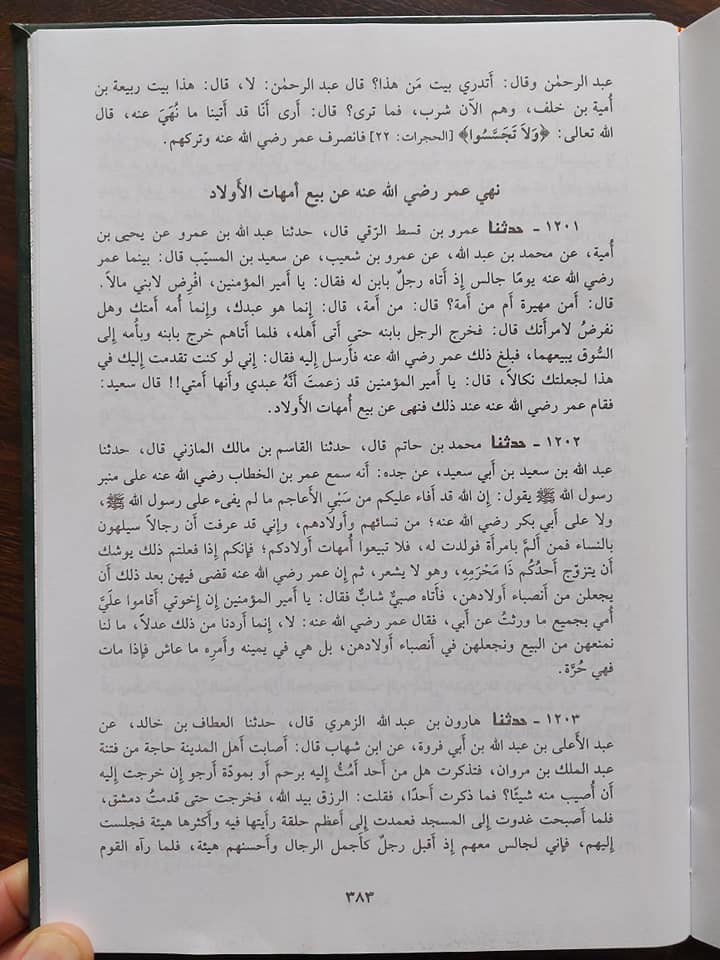 عبد الرحمٰن وقال: أَتدري بيت مَن هذا؟ قال عبد الرحمٰن: لا، قال: هذا بيت ربيعة بن
أُمية بن خلف، وهم الآن شرب، فما ترى؟ قال: أَرى أَنَّا قد أَتينا ما نُهَيَ عنه، قال
الله تعالى: ﴿وَلَا تَجَسَّسُوا﴾ [الحجرات: ٢٢] فانصرف عمر رضي الله عنه وتركهم.
نهي عمر رضي الله عنه عن بيع أمهات الأَولاد
١٢٠١ - حدثنا عمرو بن قسط الرّقي قال، حدثنا عبد الله بن عمرو عن يحيى بن
أُمية، عن محمد بن عبد الله، عن عمرو بن شعيب، عن سعيد بن المسيّب قال: بينما عمر
رضي الله عنه يومًا جالس إِذ أَتاه رجلٌ بابن له فقال: يا أَمير المؤمنين، افْرِض لابني مالاً.
قال: أَمن مهيرة أَم من أَمة؟ قال: من أَمة، قال: إِنما هو عبدك، وإنما أُمه أَمتك وهل
نفرضُ لامرأَتك قال: فخرج الرجل بابنه حتى أَتى أَهله، فلما أَتاهم خرج بابنه وبأُمه إِلى
السُّوق يبيعهما، فبلغ ذلك عمر رضي الله عنه فأَرسل إِليه فقال: إِني لو كنت تقدمت إِليك في
هذا لجعلتك نكالاً، قال: يا أَمير المؤمنين قد زعمتَ أَنَّهُ عبدي وأَنها أَمتي!! قال سعيد:
فقام عمر رضي الله عنه عند ذلك فنهى عن بيع أُمهات الأَولاد.
١٢٠٢ - حدثنا محمد بن حاتم قال، حدثنا القاسم بن مالك المازني قال، حدثنا
عبد الله بن سعيد بن أَبي سعيد، عن جده: أَنه سمع عمر بن الخطاب رضي الله عنه على منبر
رسول الله ﷺ يقول: إِن الله قد أَفاء عليكم من سَبْيِ الأَعاجم ما لم يفىء على رسول الله ﷺ،
ولا على أَبي بكر رضي الله عنه؛ من نسائهم وأَولادهم، وإِني قد عرفت أَن رجالاً سيلهون
بالنساء فمن أَلمَّ بامرأَة فولدت له، فلا تبيعوا أُمهات أَولادكم؛ فإِنكم إِذا فعلتم ذلك يوشك
أَن يتزوّج أَحدُكُم ذَا مَحْرَمِهِ، وهو لا يشعر، ثم إِن عمر رضي الله عنه قضى فيهن بعد ذلك أَن
يجعلن من أَنصباء أَولادهن، فأَتاه صبيٌّ شابٌّ فقال: يا أَمير المؤمنين إِن إِخوتي أَقاموا عَلَيَّ
أُمي بجميع ما ورثتُ عن أَبي، فقال عمر رضي الله عنه: لا، إِنما أَردنا من ذلك عدلاً، ما لنا
نمنعهن من البيع ونجعلهن في أَنصباء أَولادهن، بل هي في يمينه وأَمرِه ما عاش فإِذا مات
فهي حُرَّة.
١٢٠٣ - حدثنا هارون بن عبد الله الزهري قال، حدثنا العطاف بن خالد، عن
عبد الأَعلى بن عبد الله بن أَبي فروة، عن ابن شهاب قال: أَصابت أَهل المدينة حاجة من فتنة
عبد الملك بن مروان، فتذكرت هل من أَحد أَمُتُّ إِليه برحم أَو بمودّة أَرجو إِن خرجت إِليه
أَن أُصيب منه شيئًا؟ فما ذكرت أَحدًا، فقلت: الرزق بيد الله، فخرجت حتى قدمتُ دمشق،
فلما أَصبحت غدوت إِلى المسجد فعمدت إِلى أَعظم حلقة رأَيتها فيه وأَكثرها هيئة فجلست
إِليهم، فإِني لجالس معهم إِذ أَقبل رجلٌ كأَجمل الرجال وأَحسنهم هيئة، فلما رآه القوم
٣٨٣